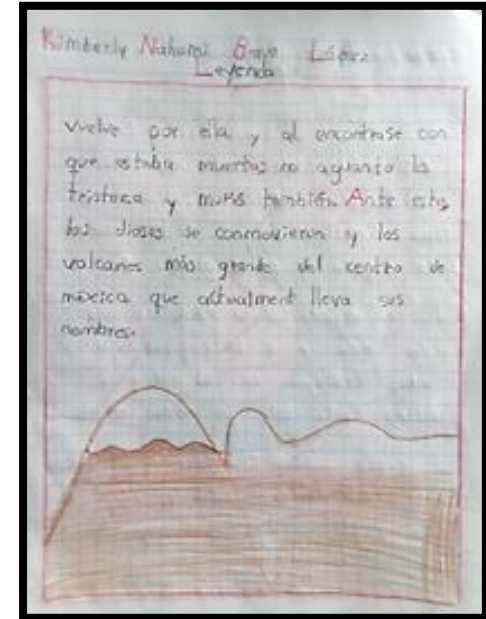 Kimberly Nahomi Bravo López
Leyenda
vuelve por ella y al encontrase con
que estaba muertas no agranto la
tristeca y murió también. Ante esto,
los dioses se conmovieron y los
volcanes más grande del centro de
méxica que actualment lleva sus
nombres.